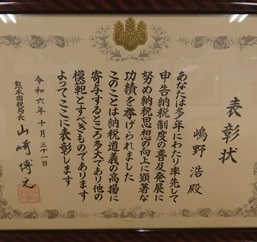 表彰状
嶋野 浩 殿
あなたは多年にわたり率先して
申告納税制度の普及発展に
努め納税思想の向上に顕著な
功績を挙げられました
このことは納税道義の高揚に
寄与するところ多大であり他の
模範とすべきものであります
よってここに表彰します
令和六年十月三十一日
熊本国税局長 山崎博之